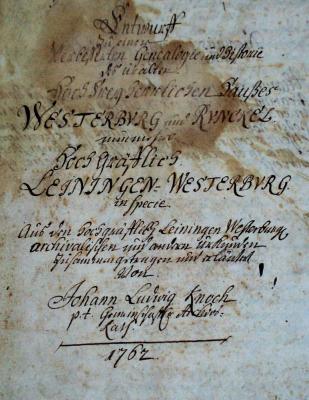 Entwurff
zu einer
Verbesserten Genealogie und Historie
des uralten
Hochregierlichen Haußes
WESTERBURG und RUNCKEL
nunmehr
Hochgräflich
LEININGEN-WESTERBURG
in specie
Aus den Hochgräflich Leiningen Westerburg
archivalischen und andern Urkunden
zusammengetragen und
von
Johann Ludwig Knoch
p.t. Gemeinschaftl. Archiv-
Rath
1762.